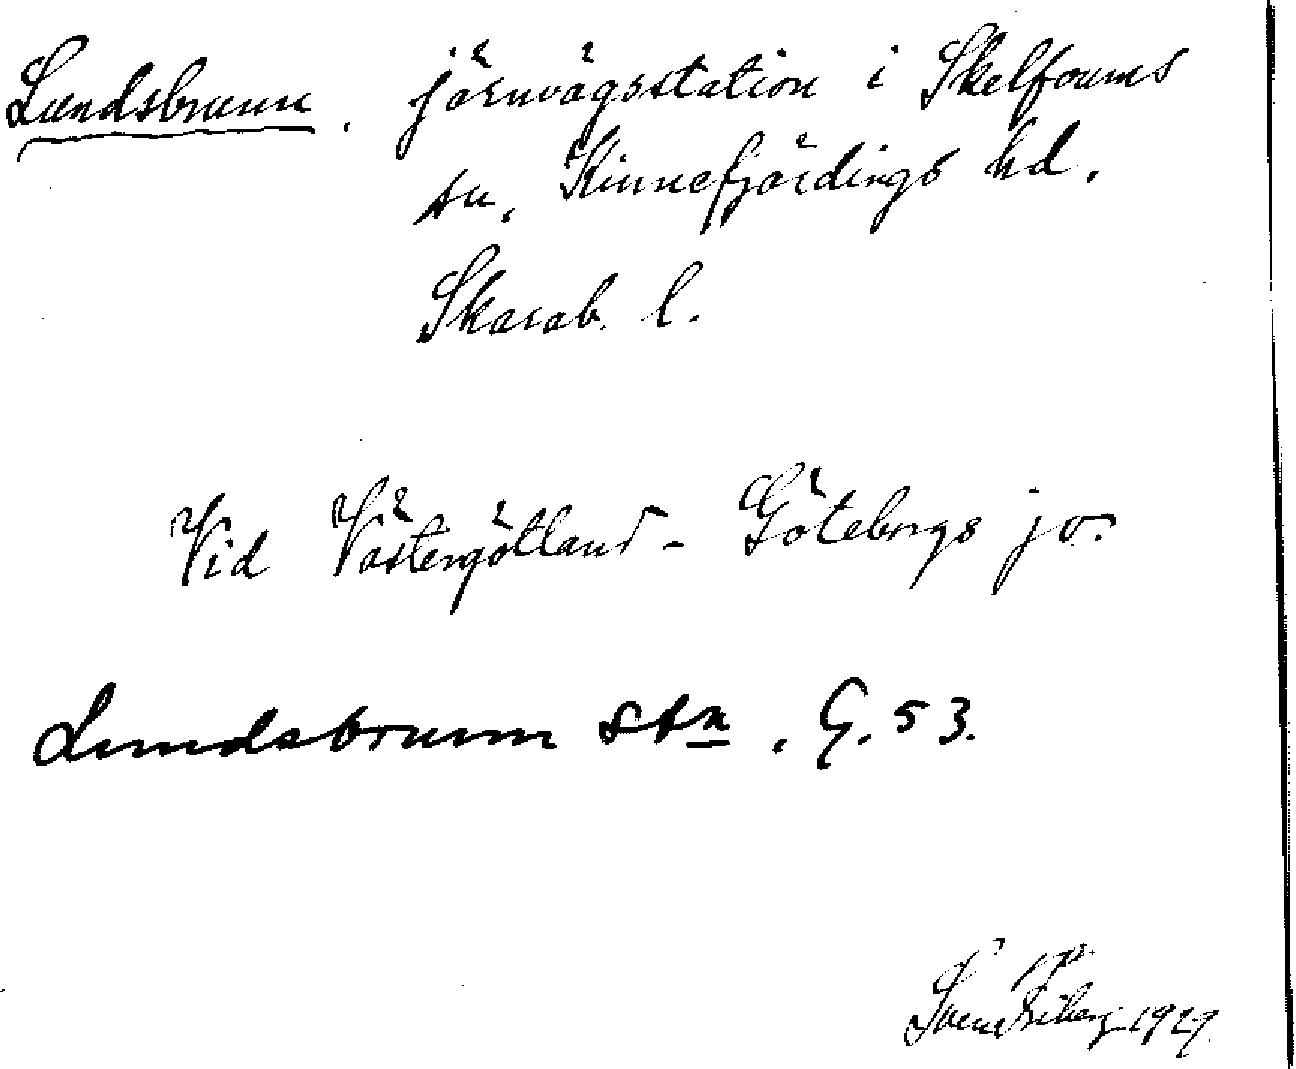 Lundsbrunn. järnvägsstation i Skelfvums
sn, Kinnefjärdings hd.
Skarab. l.
Vid Västergötland - Göteborgs jv.
Lundsbrunn stn. G. 53.
Sven Friberg 1929.